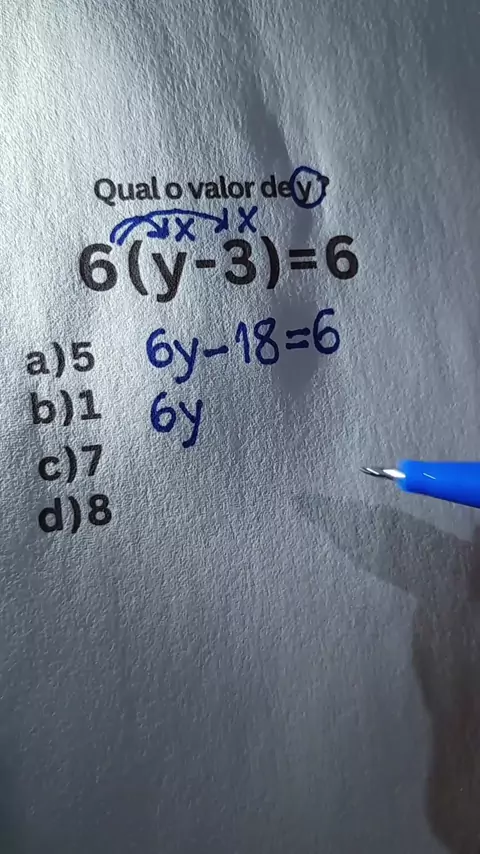 Qual o valor de y?
x x
6(y-3)=6
a)5 6y-18=6
b)1 6y
c)7
d)8